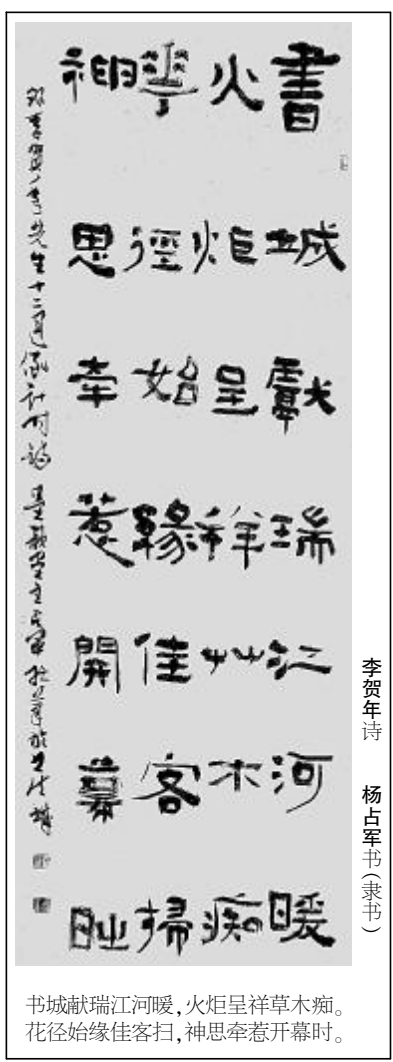 書城獻瑞江河暖
火炬呈祥艸木痴
華徑始緣佳客掃
神思牽惹開幕時
李賀年先生十二月
李贺年诗 杨占军书(隶书)
书城献瑞江河暖,火炬呈祥草木痴。
花径始缘佳客扫,神思牵惹开幕时。